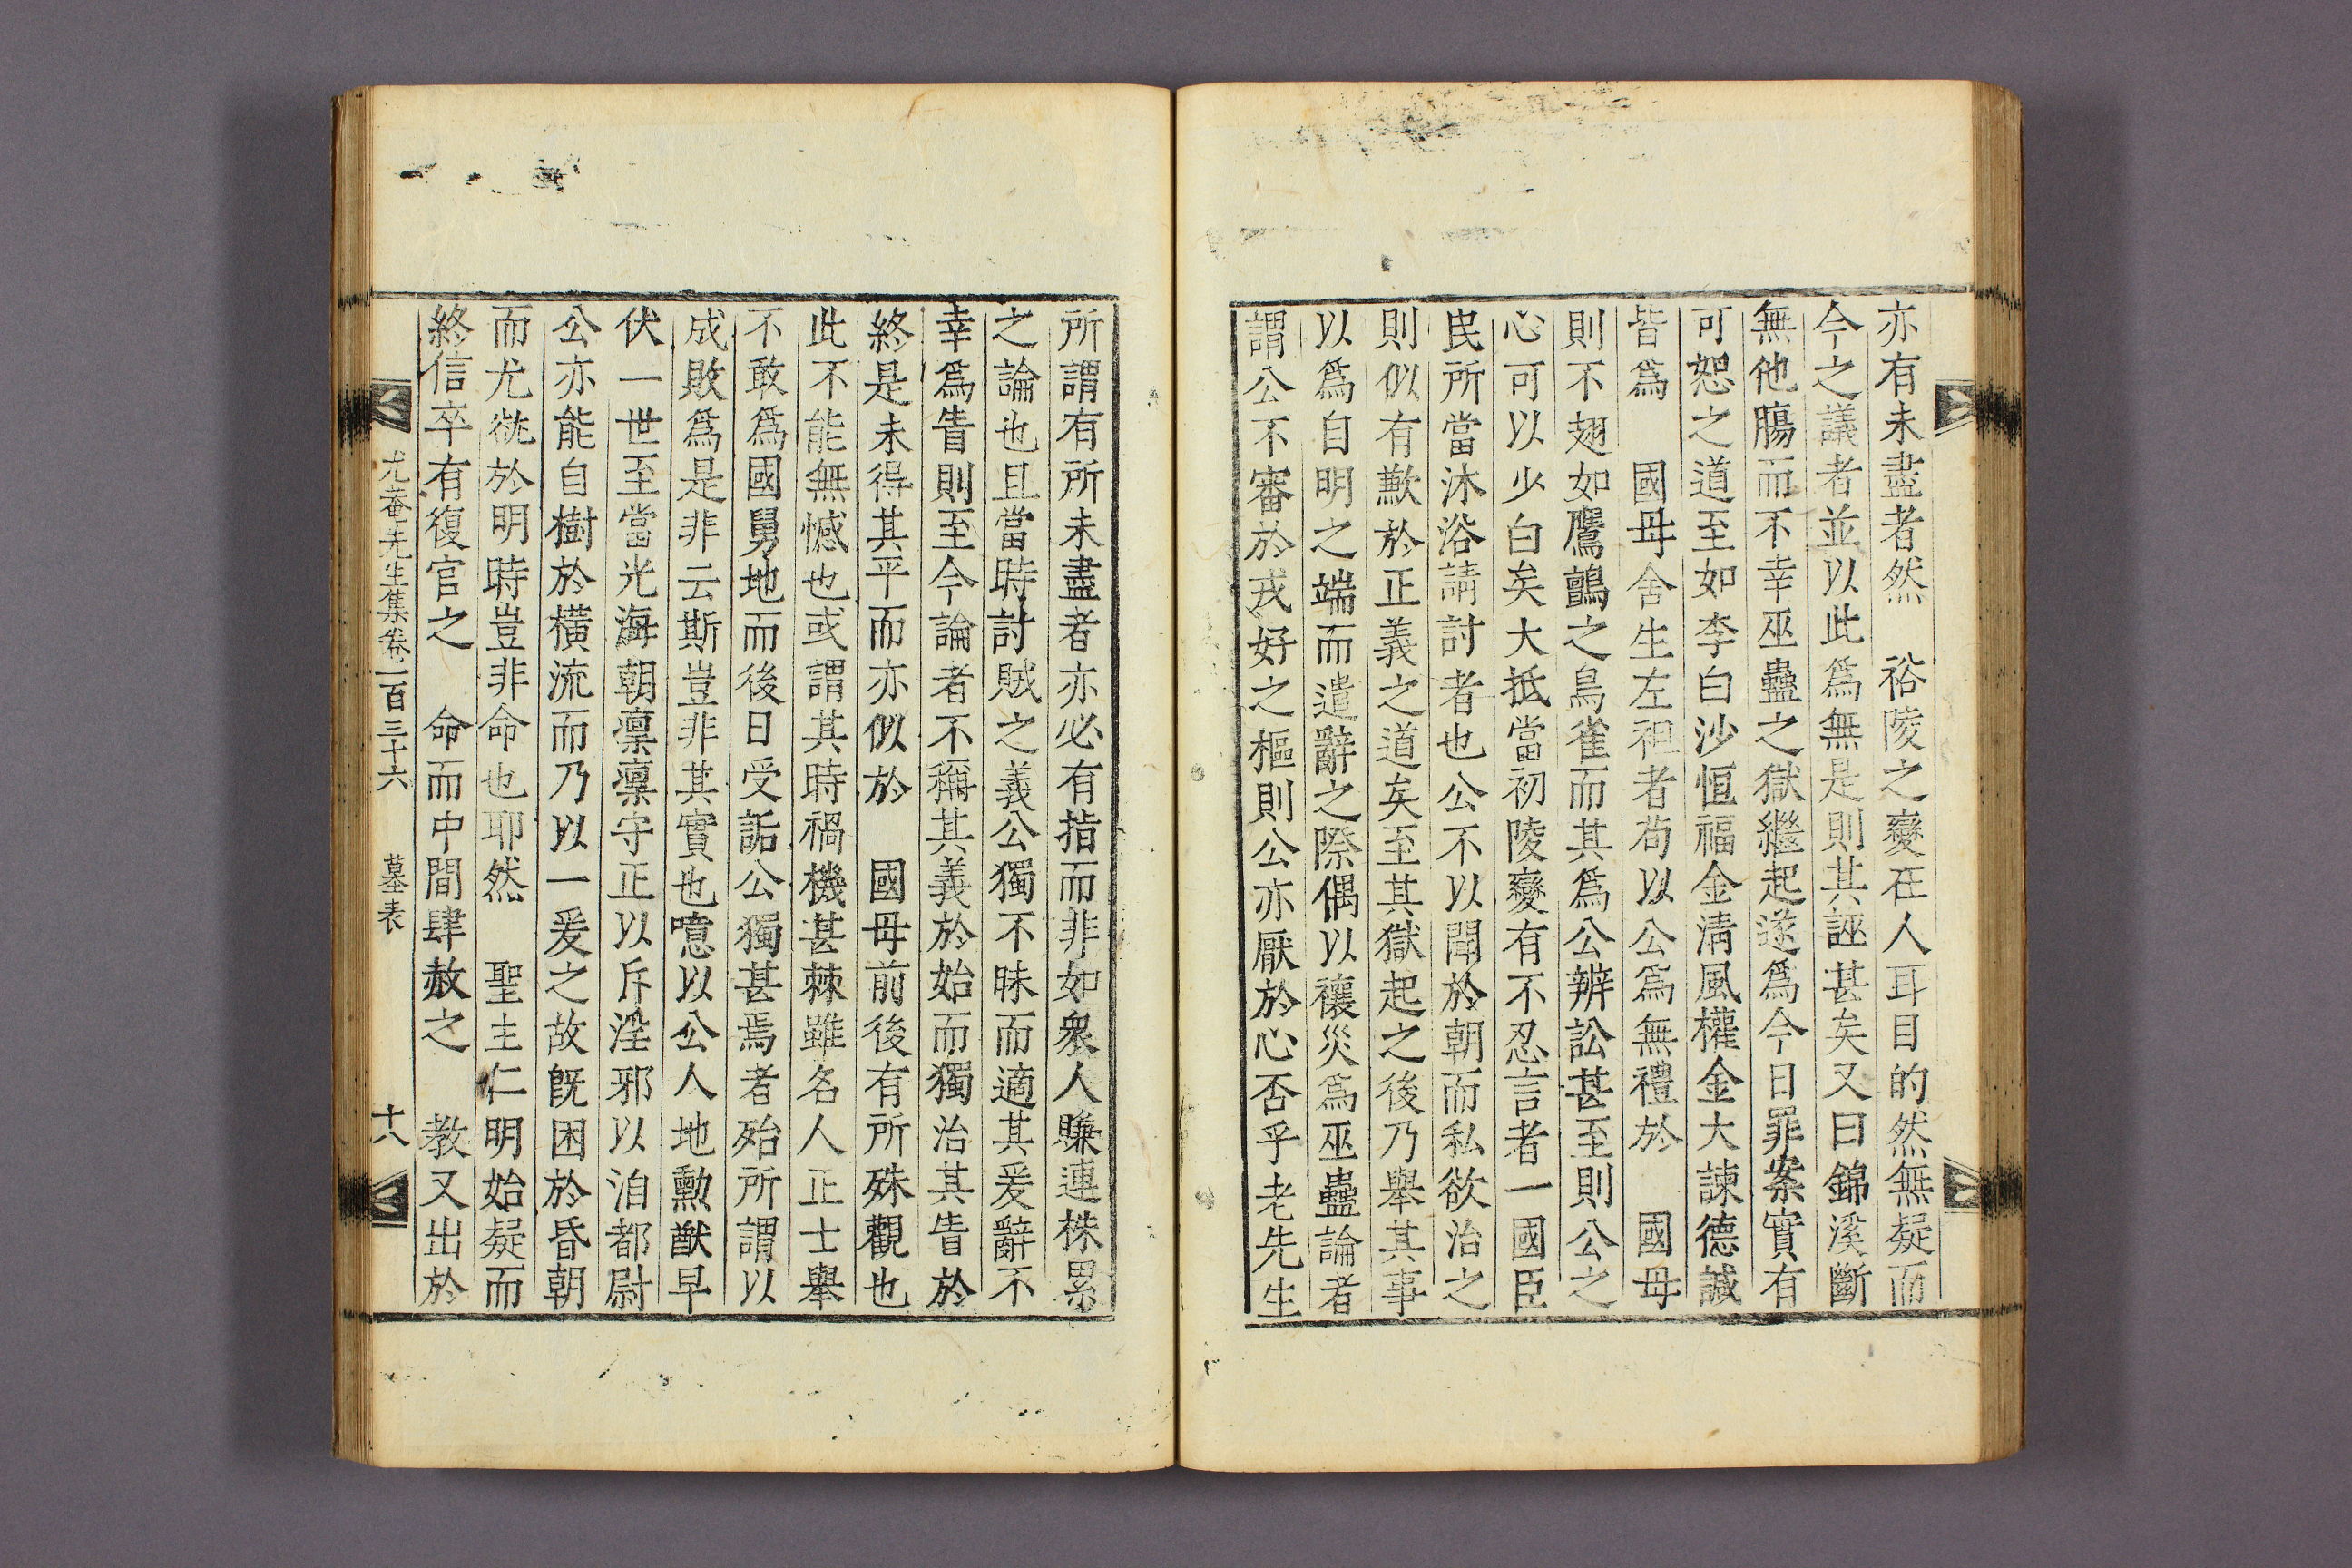 亦有未盡者然　裕陵之變在人耳目的然無疑而
今之議者並以此爲無是則其誣甚矣又曰錦溪斷
無他膓而不幸巫蠱之獄繼起遂爲今日罪案實有
可恕之道至如李白沙恒福金淸風權金大諫德諴
皆爲　國母舍生左袒者苟以公爲無禮於　國母
則不翅如鷹鸇之鳥雀而其爲公辨訟甚至則公之
心可以少白矣大抵當初陵變有不忍言者一國臣
民所當沐浴請討者也公不以聞於朝而私欲治之
則似有歉於正義之道矣至其獄起之後乃舉其事
以爲自明之端而遣辭之際偶以禳災爲巫蠱論者
謂公不審於戎好之樞則公亦厭於心否乎老先生
所謂有所未盡者亦必有指而非如衆人賺連株累
之論也且當時討賊之義公獨不昧而適其爰辭不
幸爲眚則至今論者不稱其義於始而獨治其眚於
終是未得其平而亦似於　國母前後有所殊觀也
此不能無憾也或謂其時禍機甚棘雖名人正士舉
不敢爲國舅地而後日受詬公獨甚焉者殆所謂以
成敗爲是非云斯豈非其實也噫以公人地勳猷早
伏一世至當光海朝凛凛守正以斥淫邪以洎都尉
公亦能自樹於橫流而乃以一爰之故旣困於昏朝
而尤㲉於明時豈非命也耶然　聖主仁明始疑而
終信卒有復官之　命而中間肆赦之　教又出於
尤菴先生集卷一百三十六　墓表　十八